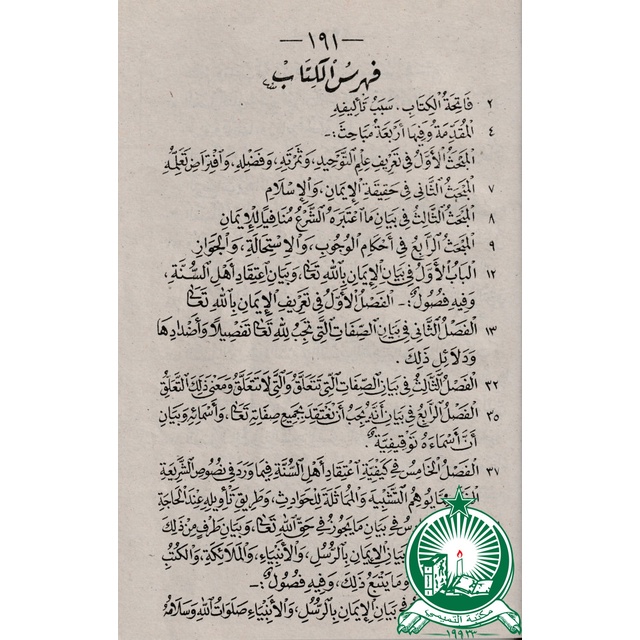 — ١٩١ —
فهرس الكتاب
٢ فَاتِحَةُ الكِتَابِ. سَبَبُ تَأْلِيفِهِ
٤ المُقَدِّمَةُ وَفِيهَا أَرْبَعَةُ مَبَاحِثَ:-
المَبْحَثُ الأَوَّلُ فِي تَعْرِيفِ عِلْمِ التَّوْحِيدِ، وَثَمَرَتِهِ، وَفَضْلِهِ، وَافْتِرَاضِ تَعَلُّمِهِ
٧ المَبْحَثُ الثَّانِي فِي حَقِيقَةِ الإِيمَانِ، وَالإِسْلَامِ
٨ المَبْحَثُ الثَّالِثُ فِي بَيَانِ مَا اعْتَبَرَهُ الشَّرْعُ مُنَافِيًا لِلْإِيمَانِ
٩ المَبْحَثُ الرَّابِعُ فِي أَحْكَامِ الوُجُوبِ، وَالِاسْتِحَالَةِ، وَالجَوَازِ
١٢ البَابُ الأَوَّلُ فِي بَيَانِ الإِيمَانِ بِاللهِ تَعَالَى، وَبَيَانِ اعْتِقَادِ أَهْلِ السُّنَّةِ،
وَفِيهِ فُصُولٌ:- الفَصْلُ الأَوَّلُ فِي تَعْرِيفِ الإِيمَانِ بِاللهِ تَعَالَى
١٣ الفَصْلُ الثَّانِي فِي بَيَانِ الصِّفَاتِ الَّتِي تَجِبُ لِلهِ تَعَالَى تَفْصِيلًا وَأَضْدَادِهَا
وَدَلَائِلِ ذَلِكَ.
٣٢ الفَصْلُ الثَّالِثُ فِي بَيَانِ الصِّفَاتِ الَّتِي تَتَعَلَّقُ وَالَّتِي لَا تَتَعَلَّقُ وَمَعْنَى ذَلِكَ التَّعَلُّقِ
٣٥ الفَصْلُ الرَّابِعُ فِي بَيَانِ أَنَّهُ يَجِبُ أَنْ نَعْتَقِدَ بِجَمِيعِ صِفَاتِهِ تَعَالَى، وَأَسْمَائِهِ وَبَيَانِ
أَنَّ أَسْمَاءَهُ تَوْقِيفِيَّةٌ.
٣٧ الفَصْلُ الخَامِسُ فِي كَيْفِيَّةِ اعْتِقَادِ أَهْلِ السُّنَّةِ فِيمَا وَرَدَ فِي نُصُوصِ الشَّرِيعَةِ
يُوهِمُ التَّشْبِيهَ وَالمُمَاثَلَةَ لِلْحَوَادِثِ، وَطَرِيقِ تَأْوِيلِهِ عِنْدَ الحَاجَةِ
فِي بَيَانِ مَا يَجُوزُ فِي حَقِّ اللهِ تَعَالَى، وَبَيَانِ طَرَفٍ مِنْ ذَلِكَ
الإِيمَانِ بِالرُّسُلِ، وَالأَنْبِيَاءِ، وَالمَلَائِكَةِ، وَالكُتُبِ
وَمَا يَتْبَعُ ذَلِكَ، وَفِيهِ فُصُولٌ:-
فِي بَيَانِ الإِيمَانِ بِالرُّسُلِ، وَالأَنْبِيَاءِ صَلَوَاتُ اللهِ وَسَلَامُهُ
مكتبة التميمي
١٩٩٣